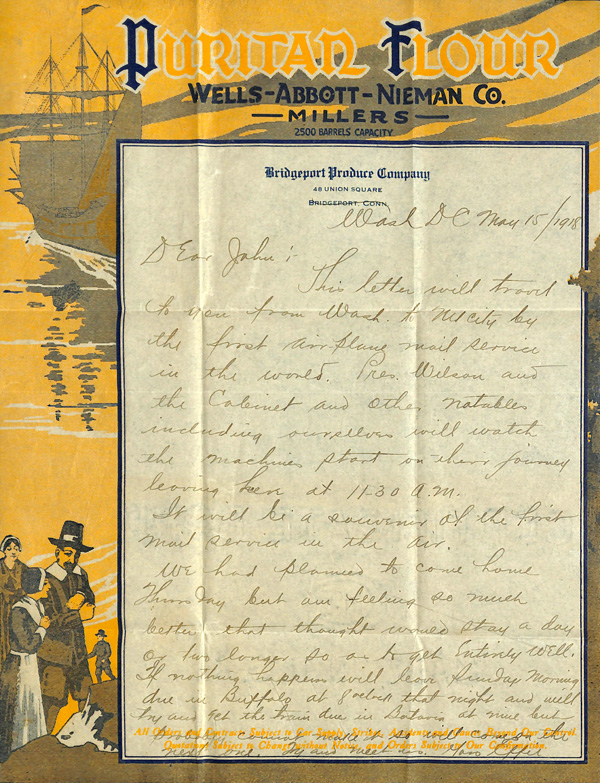 PURITAN FLOUR
WELLS-ABBOTT-NIEMAN CO.
MILLERS
2500 BARRELS CAPACITY
Bridgeport Produce Company
48 UNION SQUARE
BRIDGEPORT, CONN.
Wash DC May 15/1918
Dear John:
This letter will travel
to you from Wash. to NY city by
the first air-plane mail service
in the world. Pres. Wilson and
the Cabinet and other notables
including ourselves will watch
the machines start on their journey
leaving here at 11-30 A.M.
It will be a souvenir of the first
mail service in the air.
We had planned to come home
Thursday but am feeling so much
better that thought would stay a day
or two longer so as to get Entirely Well.
If nothing happens will leave Sunday Morning
due in Buffalo at 8 oclock that night and will
try and get the train due in Batavia at nine but
All Orders and Contracts Subject to Car Supply, Strikes, Accidents and Causes Beyond Our Control.
Quotations Subject to Change without Notice, and Orders Subject to Our Confirmation.